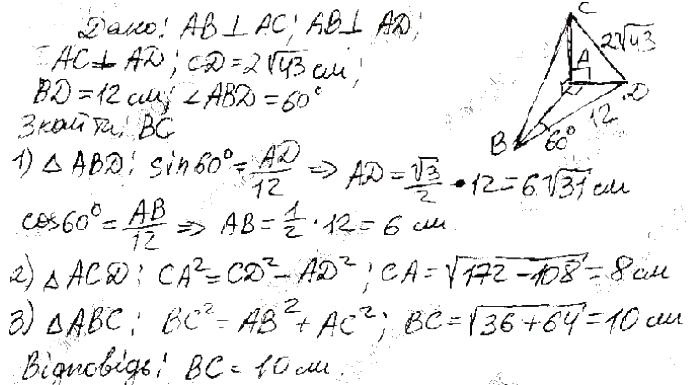 Дано: AB ⊥ AC; AB ⊥ AD;
AC ⊥ AD; CD = 2√43 см;
BD = 12 см; ∠ABD = 60°
Знайти: BC
C
2√43
A
D
12
60°
B
1) △ ABD: sin60° = AD/12 ⇒ AD = √3/2 · 12 = 6√31 см
cos60° = AB/12 ⇒ AB = 1/2 · 12 = 6 см
2) △ ACD: CA² = CD² - AD²; CA = √172 - 108 = 8 см
3) △ ABC: BC² = AB² + AC²; BC = √36 + 64 = 10 см
Відповідь: BC = 10 см.